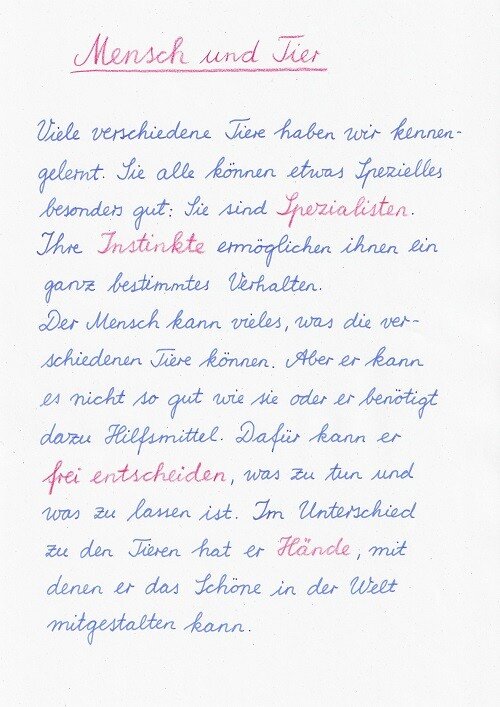 Mensch und Tier
Viele verschiedene Tiere haben wir kennen-
gelernt. Sie alle können etwas Spezielles
besonders gut: Sie sind Spezialisten.
Ihre Instinkte ermöglichen ihnen ein
ganz bestimmtes Verhalten.
Der Mensch kann vieles, was die ver-
schiedenen Tiere können. Aber er kann
es nicht so gut wie sie oder er benötigt
dazu Hilfsmittel. Dafür kann er
frei entscheiden, was zu tun und
was zu lassen ist. Im Unterschied
zu den Tieren hat er Hände, mit
denen er das Schöne in der Welt
mitgestalten kann.